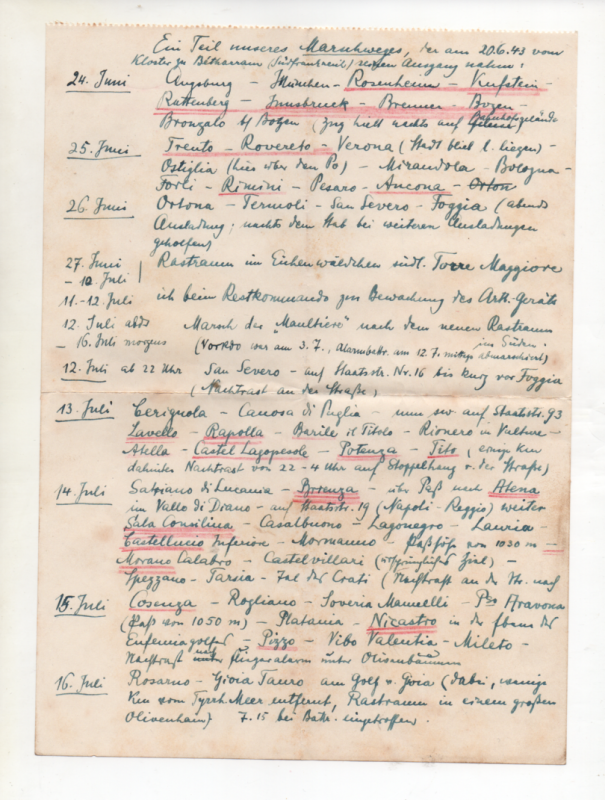 Ein Teil unseres Marschweges, der am 20.6.43 vom
Kloster zu Bétharram (Südfrankreich) seinen Ausgang nahm:
24. Juni Augsburg – München – Rosenheim – Kufstein –
Rattenberg – Innsbruck – Brenner – Bozen –
Bronzolo b/ Bozen (Zug hielt nachts auf Bahnhofgelände)
25. Juni Trento – Rovereto – Verona (Stadt blieb l. liegen) –
Ostiglia (hier über den Po) – Mirandola – Bologna –
Forli – Rimini – Pesaro – Ancona – Orton
26. Juni Ortona – Termoli – San Severo – Foggia (abends
Ausladung; nachts dem Stab bei weiteren Ausladungen
geholfen)
27. Juni – 10. Juli Rastraum im Eichenwäldchen südl. Torre Maggiore
11.–12. Juli ich beim Restkommando zur Bewachung des Artl.-Geräts
12. Juli abds Marsch der "Maultiere" nach dem neuen Rastraum
– 16. Juli morgens (Vorkdo war am 3.7., Alarmbattr. am 12.7. mittags abmarschiert) im Süden.
12. Juli ab 22 Uhr San Severo – auf Staatsstr. Nr. 16 bis kurz vor Foggia
(Nachtrast an der Straße)
13. Juli Cerignola – Canosa di Puglia – nun sw auf Staatsstr. 93
Lavello – Rapolla – Barile il Titolo – Rionero in Vulture –
Atella – Castel Lagopesole – Potenza – Tito (einige km
dahinter Nachtrast von 22–4 Uhr auf Stoppelhang r. der Straße)
14. Juli Satriano di Lucania – Brienza – über Paß nach Atena
im Vallo di Diano – auf Staatsstr. 19 (Napoli–Reggio) weiter
Sala Consilina – Casalbuono – Lagonegro – Lauria –
Castelluccio Inferiore – Mormanno – Paßhöhe von 1030 m –
Morano Calabro – Castelvillari (ursprüngliches Ziel) –
Spezzano – Tarsia – Tal des Crati (Nachtrast an der Str. nach
15. Juli Cosenza – Rogliano – Soveria Mannelli – Pso Aravona
(Paß von 1050 m) – Platania – Nicastro in der Ebene des
Eufemiagolfes – Pizzo – Vibo Valentia – Mileto –
Nachtrast nach Fliegeralarm unter Olivenbäumen
16. Juli Rosarno – Gioia Tauro am Golf v. Gioia (dabei, wenige
km vom Tyrrh. Meer entfernt, Rastraum in einem großen
Olivenhain) 7.15 bei Battr. eingetroffen.